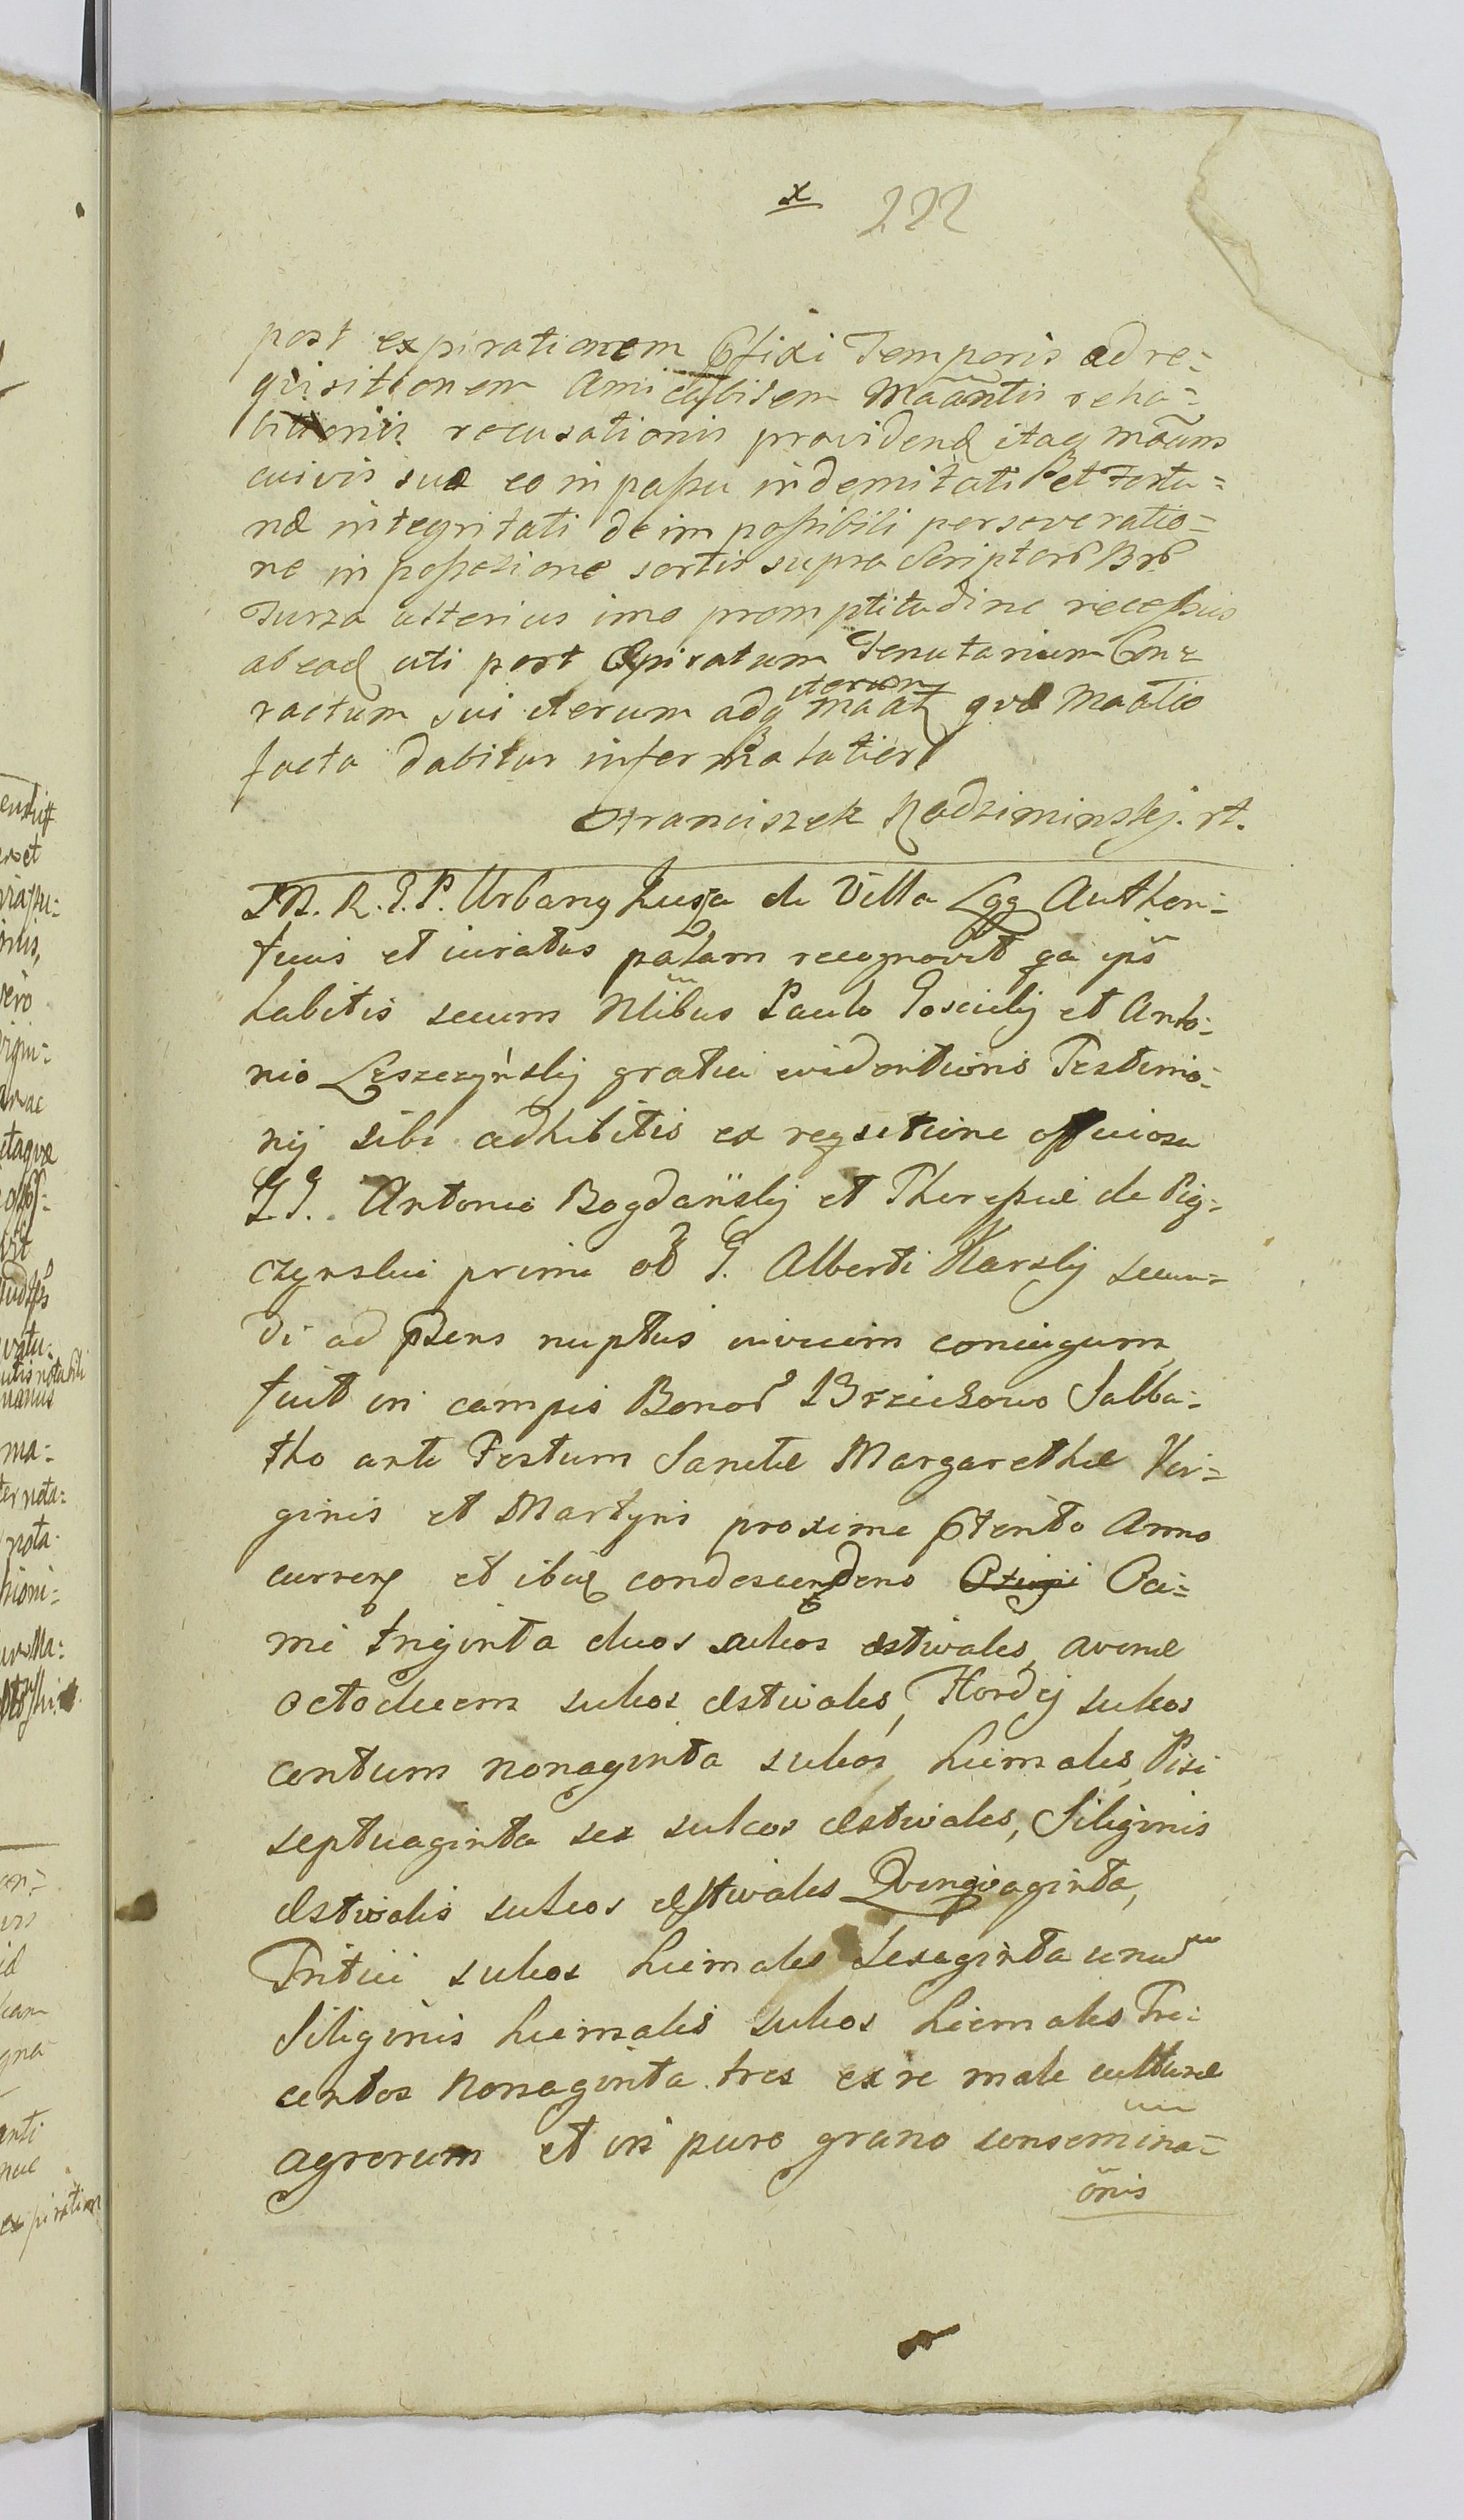 x 222
post expirationem Cfixi Temporis ad re-
quisitionem amicabilem Māāntis reha-
recusationis providend itaq
cuivis suæ eo in passu indemnitati et Fortu-
næ integritati de impossibili perseveratio-
ne in possesione sortis supra Scriptorū Brū
Turza ulterius imo promptitudine recessus
ab ead uti post Expiratum Tenutarium Con-
ractum sui iterum adq iterum maāt quæ Maātio
facta dabitur inferma latiori
Franciszek Radziminskj. rt.
M. R. J. P. Urbang Luza de Villa Lgg Authen-
ticus et iuratus palam recognovit qa ips
habitis secum Nlibus Paulo Goscickj et Anto-
nio Leszczyńskj gratia evidentioris Testimo-
nij sibi adhibitis ex reqsitione officiosa
GG. Antonio Bogdańskj et Theressiæ de Pig-
czynskie primi ol G. Alberti Karskj secun-
di ad psens nuptus invicem coniugum
fuit in campis Bonor Brzichowo Sabba-
tho ante Festum Sanctæ Margarethæ Vir-
ginis et Martyris proxime pterito Anno
curren et ibiq condescendens Ozimi Oci-
mi triginta duos sulcos æstivales, avenæ
octodecem sulcos æstivales, Hordej sulcos
centum nonaginta sulcos hiemales, Pisi
septuaginta sex sulcos æstivales, Siliginis
æstivalis sulcos æstivales Qvinqvaginta,
Triticii sulcos hiemales sexaginta unum
Siliginis hiemalis sulcos hiemales Tre-
centos nonaginta tres ex re male culturæ
agrorum et in puro grano consemina-
onis